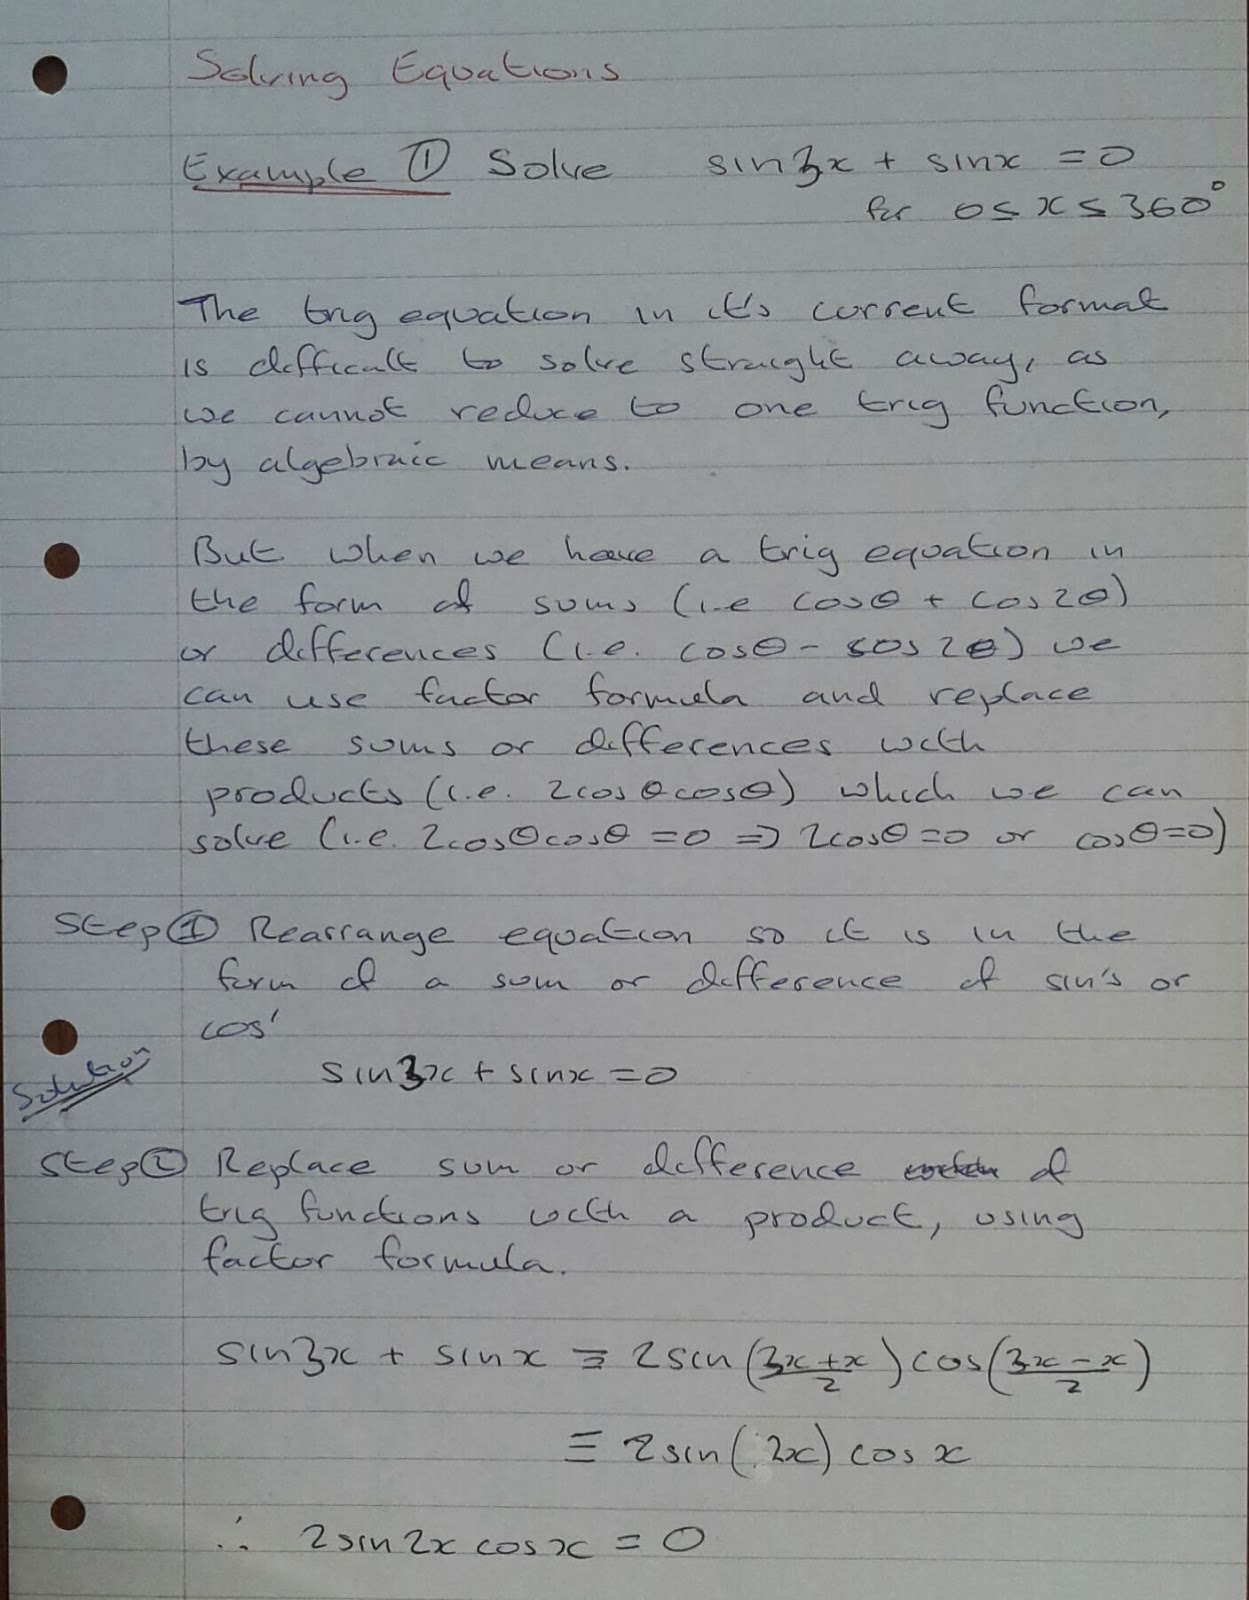 Solving Equations
Example ① Solve sin3x + sinx = 0
for 0 ≤ x ≤ 360°
The trig equation in it's current format
is difficult to solve straight away, as
we cannot reduce to one trig function,
by algebraic means.
But when we have a trig equation in
the form of sums (i.e cosθ + cos2θ)
or differences (i.e. cosθ - cos2θ) we
can use factor formula and replace
these sums or differences with
products (i.e. 2cosθcosθ) which we can
solve (i.e. 2cosθcosθ = 0 ⇒ 2cosθ = 0 or cosθ = 0)
Step ① Rearrange equation so it is in the
form of a sum or difference of sin's or
cos'
Solution
sin3x + sinx = 0
Step ② Replace sum or difference of
trig functions with a product, using
factor formula.
sin3x + sinx ≡ 2sin((3x+x)/2)cos((3x-x)/2)
≡ 2sin(2x) cosx
∴ 2sin2x cosx = 0